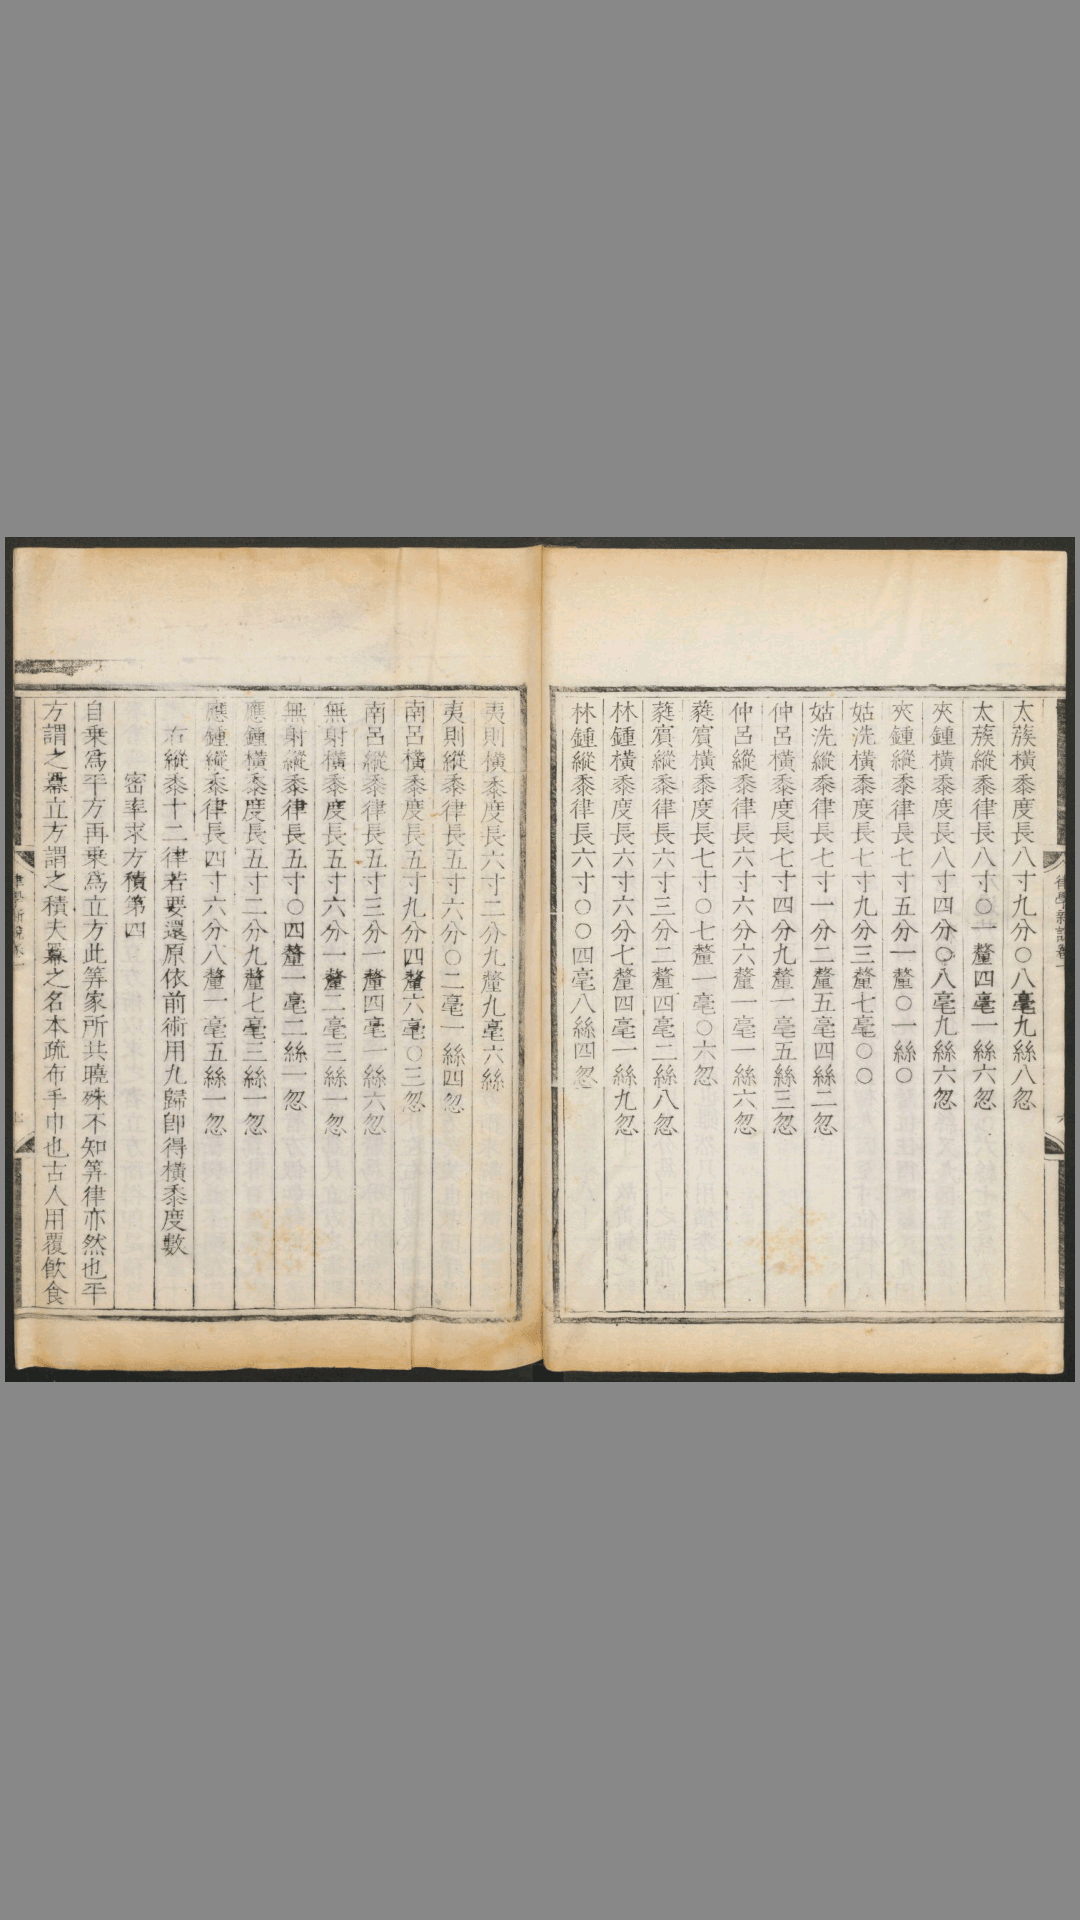 太蔟橫黍度長八寸九分〇八毫九絲八忽
太蔟縱黍律長八寸〇一釐四毫一絲六忽
夾鍾橫黍度長八寸四分〇八毫九絲六忽
夾鍾縱黍律長七寸五分一釐〇一絲〇
姑洗橫黍度長七寸九分三釐七毫〇〇
姑洗縱黍律長七寸一分二釐五毫四絲二忽
仲呂橫黍度長七寸四分九釐一毫五絲三忽
仲呂縱黍律長六寸六分六釐一毫一絲六忽
蕤賓橫黍度長七寸〇七釐一毫〇六忽
蕤賓縱黍律長六寸三分二釐四毫二絲八忽
林鍾橫黍度長六寸六分七釐四毫一絲九忽
林鍾縱黍律長六寸〇〇四毫八絲四忽
夷則橫黍度長六寸二分九釐九毫六絲
夷則縱黍律長五寸六分〇二毫一絲四忽
南呂橫黍度長五寸九分四釐六毫〇三忽
南呂縱黍律長五寸三分一釐四毫一絲六忽
無射橫黍度長五寸六分一釐二毫三絲一忽
無射縱黍律長五寸〇四釐一毫二絲一忽
應鍾橫黍度長五寸二分九釐七毫三絲一忽
應鍾縱黍律長四寸六分八釐一毫五絲一忽
右縱黍十二律若要還原依前術用九歸卽得橫黍度數
密率求方積第四
自乘爲平方再乘爲立方此筭家所共曉殊不知筭律亦然也平
方謂之羃立方謂之積夫羃之名本疏布手巾也古人用覆飮食
律學新說卷一